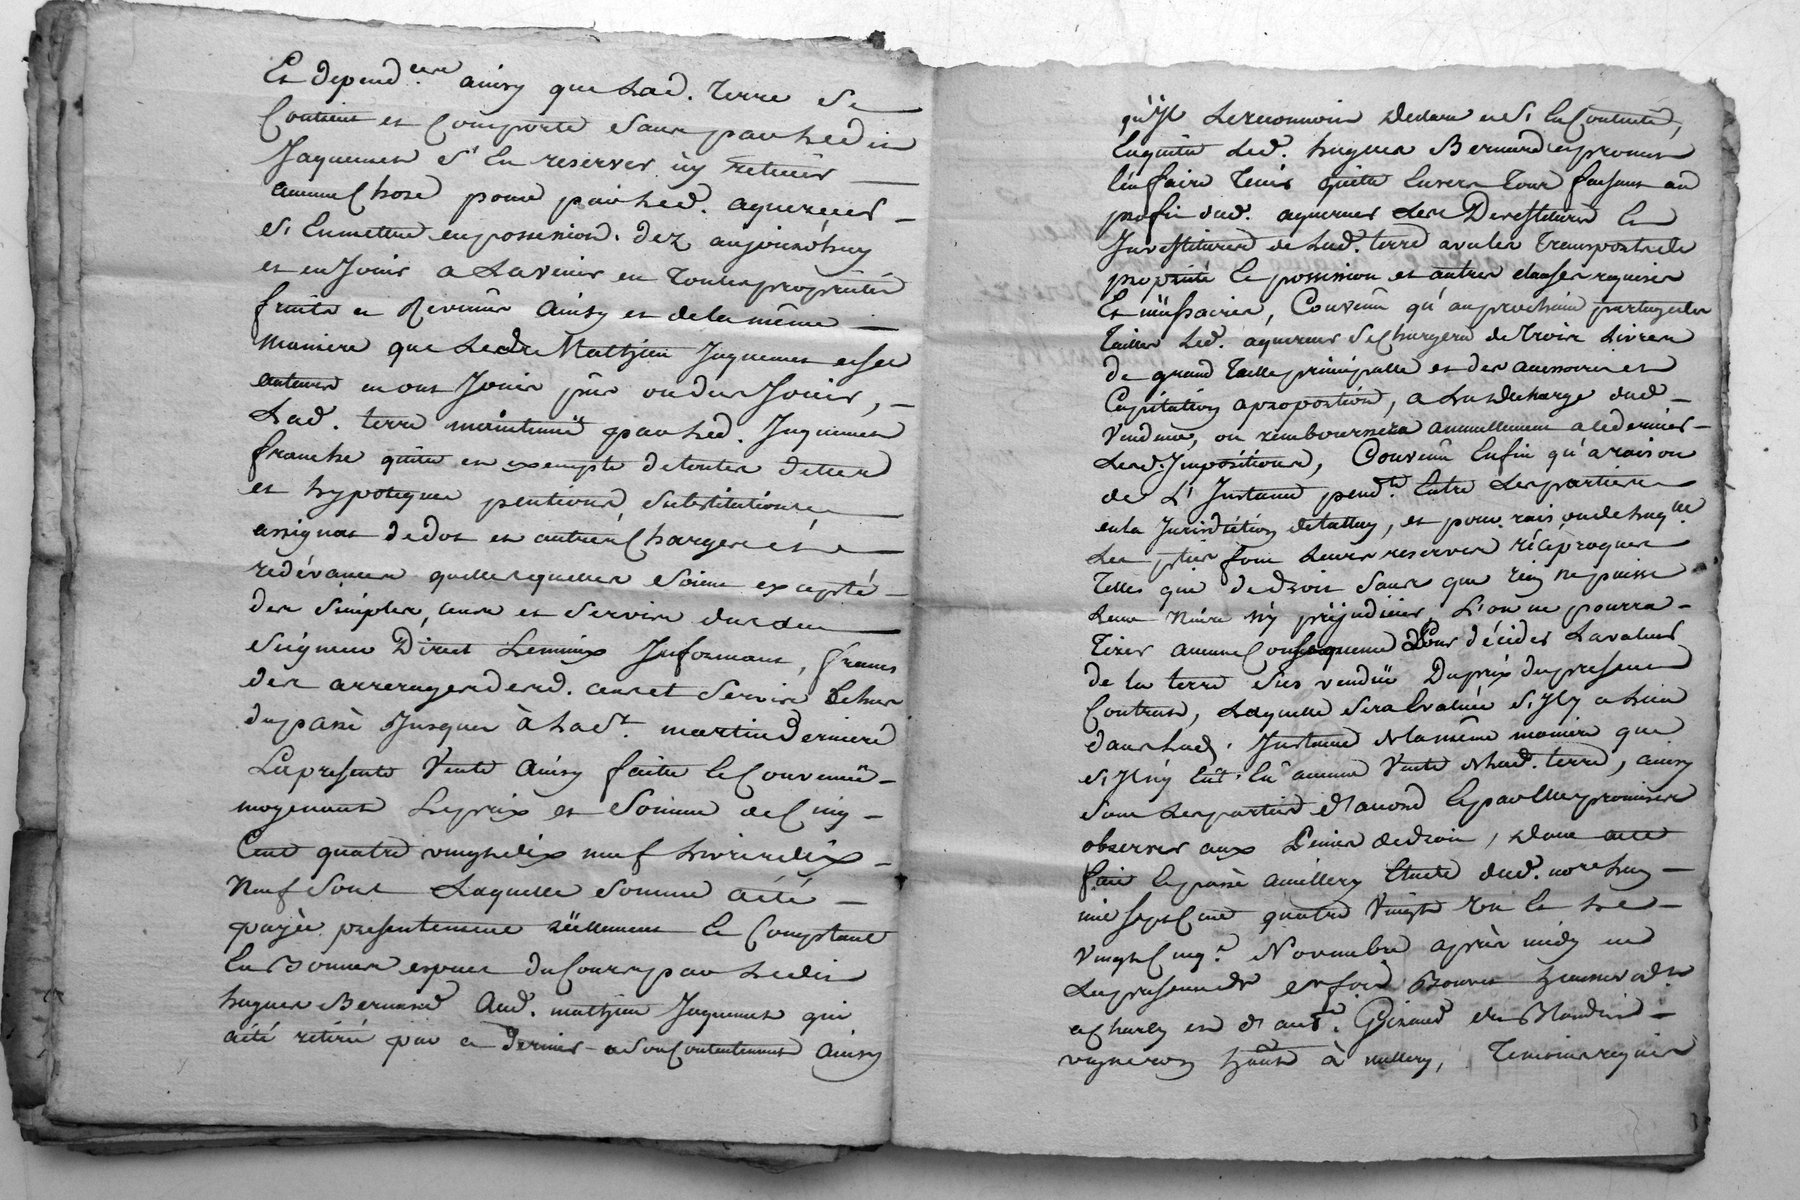 Et depend.ces ainsy que lad. terre se
Contient et Comporte sans par Ledit
Jaquemet s'En reserver n'y retenir
aucune Chose pour par led. aquereur
s'En mettre en possession dez aujourd'huy
et en Jouir a L'avenir en Toutte proprietté
fruits et Revenus ainsy et de la même
maniere que Led. Mathieu Jaquemet et ses
auteurs en ont Jouis pûs ou dus Jouir,
Lad. terre maintenuë par Led. Jaquemet
franche quitte et exempte de toutes dettes
et hypoteques pentions, substitutions
assignat de dot et autres Charges et
redévances quelles quelles soient excepté
des simples cens et servis dus au
seigneur Direct Lemieux Informant, francs
des arrerages desd. cens et servis Echus
du passé Jusques à La St. martin derniere
La presente Vente ainsy faitte Et Convenuë
moyenant Le prix et somme de Cinq
Cent quatre vingt dix neuf Livres dix
Neuf sous Laquelle somme a été
payée presentement réellement Et Comptant
En Bonnes especes du Cours par Ledit
hugues Bernard Aud. mathieu Jaquemet qui
a été retirée par ce dernier a son Contentement ainsy
qu'Il Le reconnoit Declare et s'En Contente,
En quitte Led. hugues Bernard et promet
l'en faire Tenir quitte Envers Tous faisant au
profit dud. aquereur Les Devestitures Et
Investitures de Lad. terre avec les Transports de
proprieté Et possession et autres clauses requises
Et nécessaires, Convenu qu'au prochain partage des
Tailles Led. aquereur se Chargera de trois Livres
de grand Taille principalle et des accessoires et
Capitation a proportion, a La décharge dud.
Vendeur, ou remboursera annuellement a ce dernier
Lesd. Impositions, Convenu Enfin qu'à raison
de L'Instance pend.te Entre Les parties
en la Jurisdiction de talluy, et pour raison de laq.lle
Les pties font Leurs reserves réciproques
Telles que de droit sans que rien ne puisse
Leur Nuire n'y préjudicier L'on ne pourra
Tirer aucune Consequence Pour décider La valeur
de la terre sus venduë Du prix du present
Contrat, Laquelle sera Evaluée s'Il y a Lieu
dans Lad. Instance de la même maniere que
s'Il n'y Eut Eu aucune Vente de Lad. terre, ainsy
sont Les parties d'accord Et par Elles promises
observer aux Peines de droit, Dont acte
fait Et passé a millery Etude dud. no.re Lan
mil sept Cent quatre Vingt un Et Le
Vingt Cinq.e Novembre après midy en
Les presences de
a Charly et d'ant.e Giraud dit Blondin
vigneron Hant à millery, Temoins requis